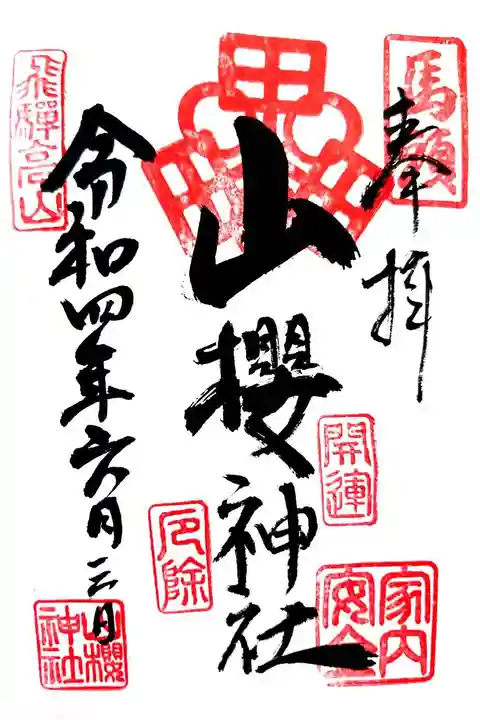 馬頭
奉拝
開運
家内
安全
山櫻神社
厄除
飛騨高山
令和四年六月三日
山櫻
神社